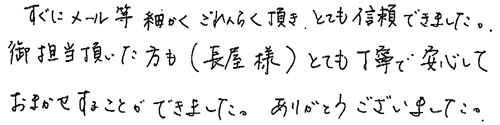 すぐにメール等 細かく ごれんらく頂き、とても信頼できました。
御担当頂いた方も(長屋様)とても丁寧で安心して
おまかせすることができました。 ありがとうございました。